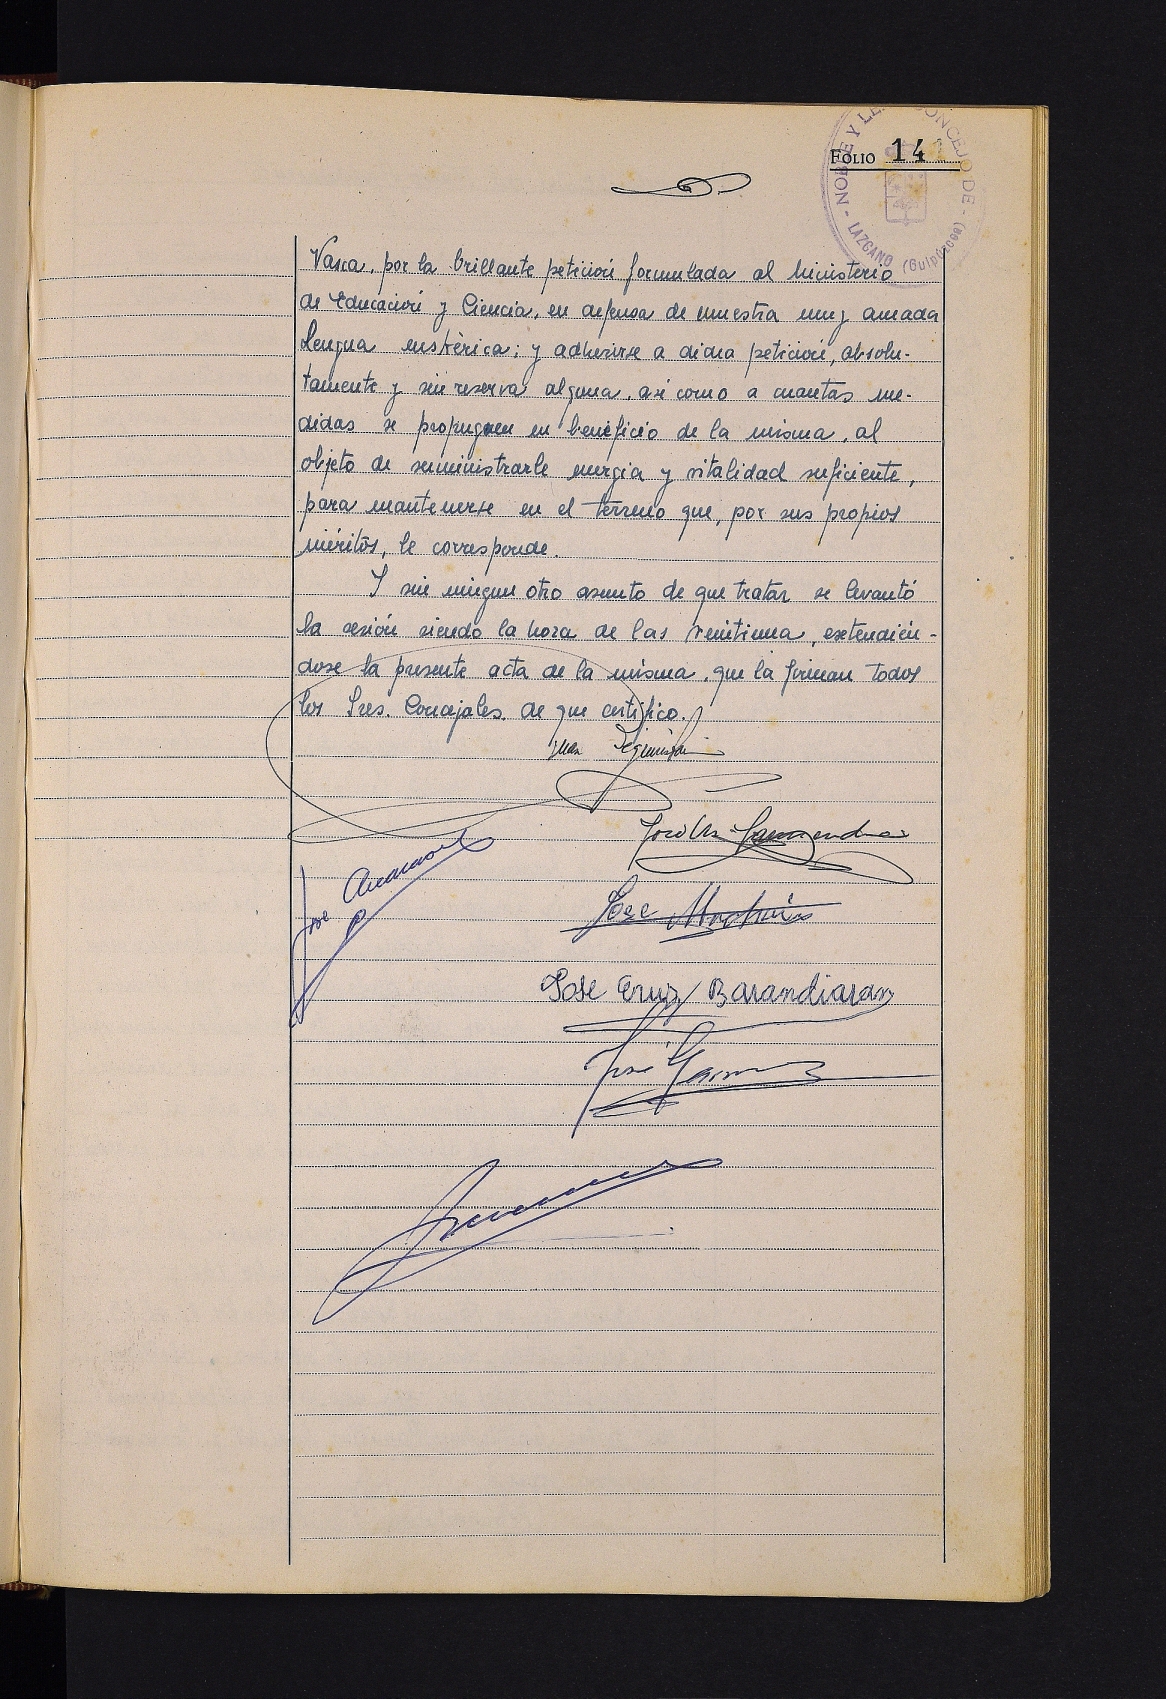 NOBLE Y LEAL CONCEJO DE - LAZCANO (Guipúzcoa) -
FOLIO 14
Vasca, por la brillante petición formulada al Ministerio
de Educación y Ciencia, en defensa de nuestra muy amada
lengua euskérica; y adherirse a dicha petición, absolu-
tamente y sin reserva alguna, asi como a cuantas me-
didas se propugnen en beneficio de la misma, al
objeto de suministrarle energia y vitalidad suficiente,
para mantenerse en el terreno que, por sus propios
méritos, le corresponde.
Y sin ningun otro asunto de que tratar se levantó
la sesión siendo la hora de las veintiuna, extendién-
dose la presente acta de la misma, que la firman todos
los Sres. Concejales. de que certifico.
Jose
Jose
Jose Cruz Barandiaran
José